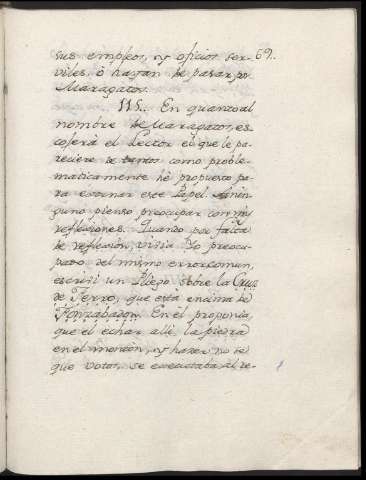 69..
sus empleos, ny oficios ser-
viles, ó hayan de pasar por
Maragatos.
115.. En quanto al
nombre de Maragatos, es-
cojerà el Lector el que le pa-
reciere de tantos como proble-
maticamente hè propuesto pa-
ra exornar este Papel. A nin-
guno pienso preocupar con mis
reflexiones. Quando por falta
de reflexión, vivia Yo preocu-
pado del mismo error comun,
escrivi un Pliego sobre la Cruz
de Ferro, que està encima de
Fonzabadon. En el proponia,
que el echar alli la piedra
en el monton, ny hazer no sè
que votos, se executaba al re-